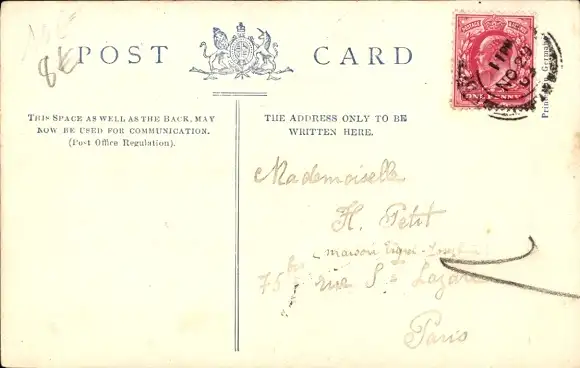 POST CARD
THIS SPACE AS WELL AS THE BACK, MAY
NOW BE USED FOR COMMUNICATION.
(Post Office Regulation).
THE ADDRESS ONLY TO BE
WRITTEN HERE.
11 PM
NO 29
ONE PENNY
Mademoiselle
H. Petit
(maison
75 bis rue St Lazare
Paris